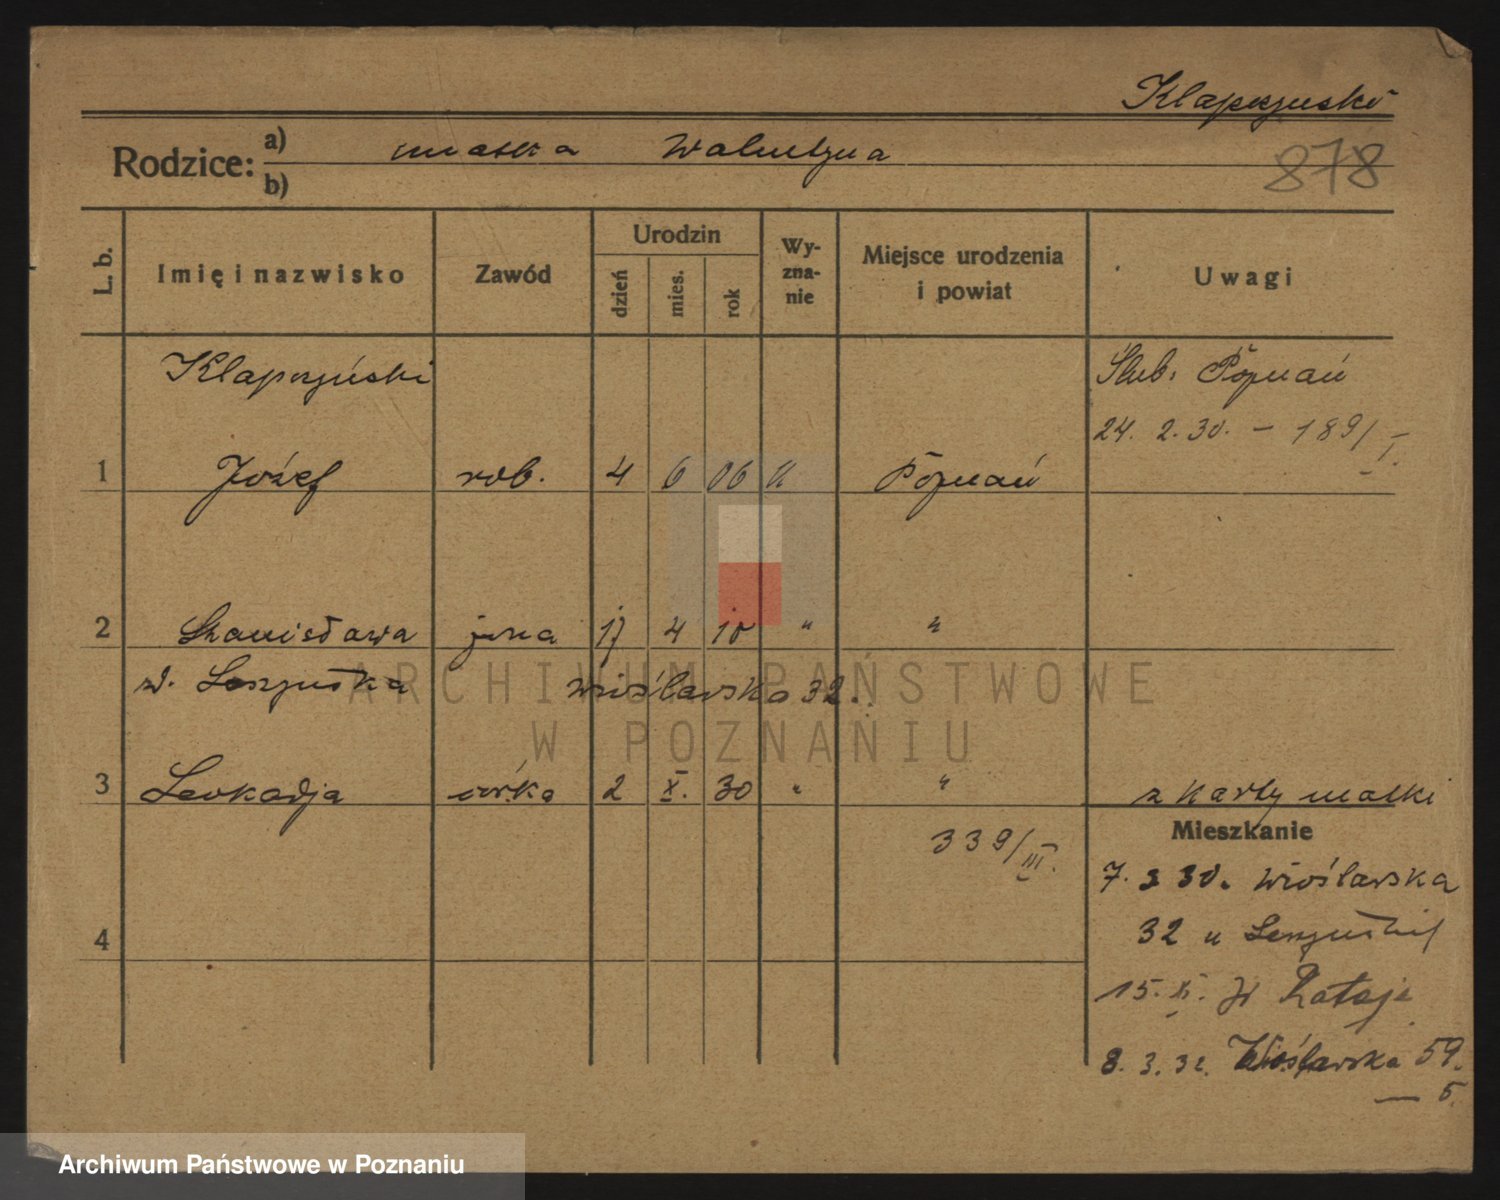 Klapczyński
Rodzice: a) matka Walentyna
b)
878
L. b. Imię i nazwisko Zawód Urodzin dzień mies. rok Wy-zna-nie Miejsce urodzenia i powiat Uwagi
Klapczyński Ślub: Poznań
24. 2. 30. – 189/I.
1 Józef rob. 4 6 06 k Poznań
2 Stanisława żona 17 4 10 " "
Wioślarska 32.
3 Leokadja córka 2 X. 30 " " z karty matki
339/III.
Mieszkanie
7. 3 30. Wioślarska
32 u
4
15. XI. W Rataje
8. 3. 32. Wioślarska 59.
— 5.
ARCHIWUM PAŃSTWOWE
W POZNANIU
Archiwum Państwowe w Poznaniu